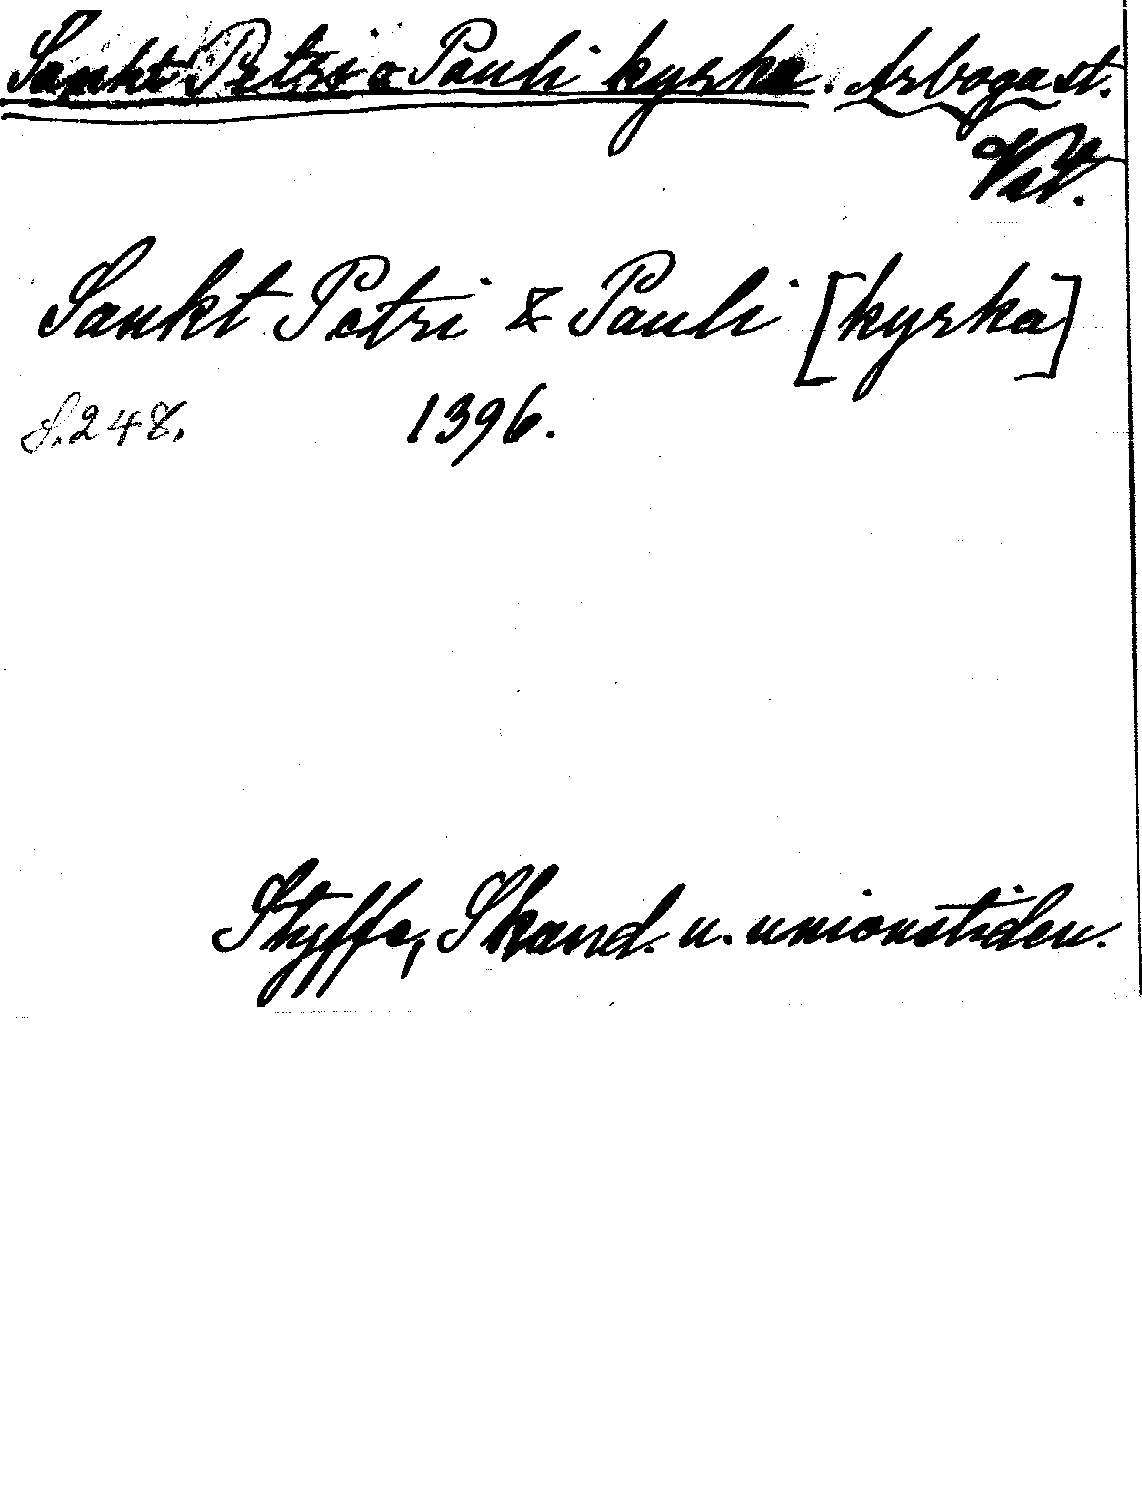 Sankt Petri o Pauli kyrka. Arboga st.
Vstl.
Sankt Petri & Pauli [kyrka]
s. 248. 1396.
Styffe, Skand. u. unionstiden.